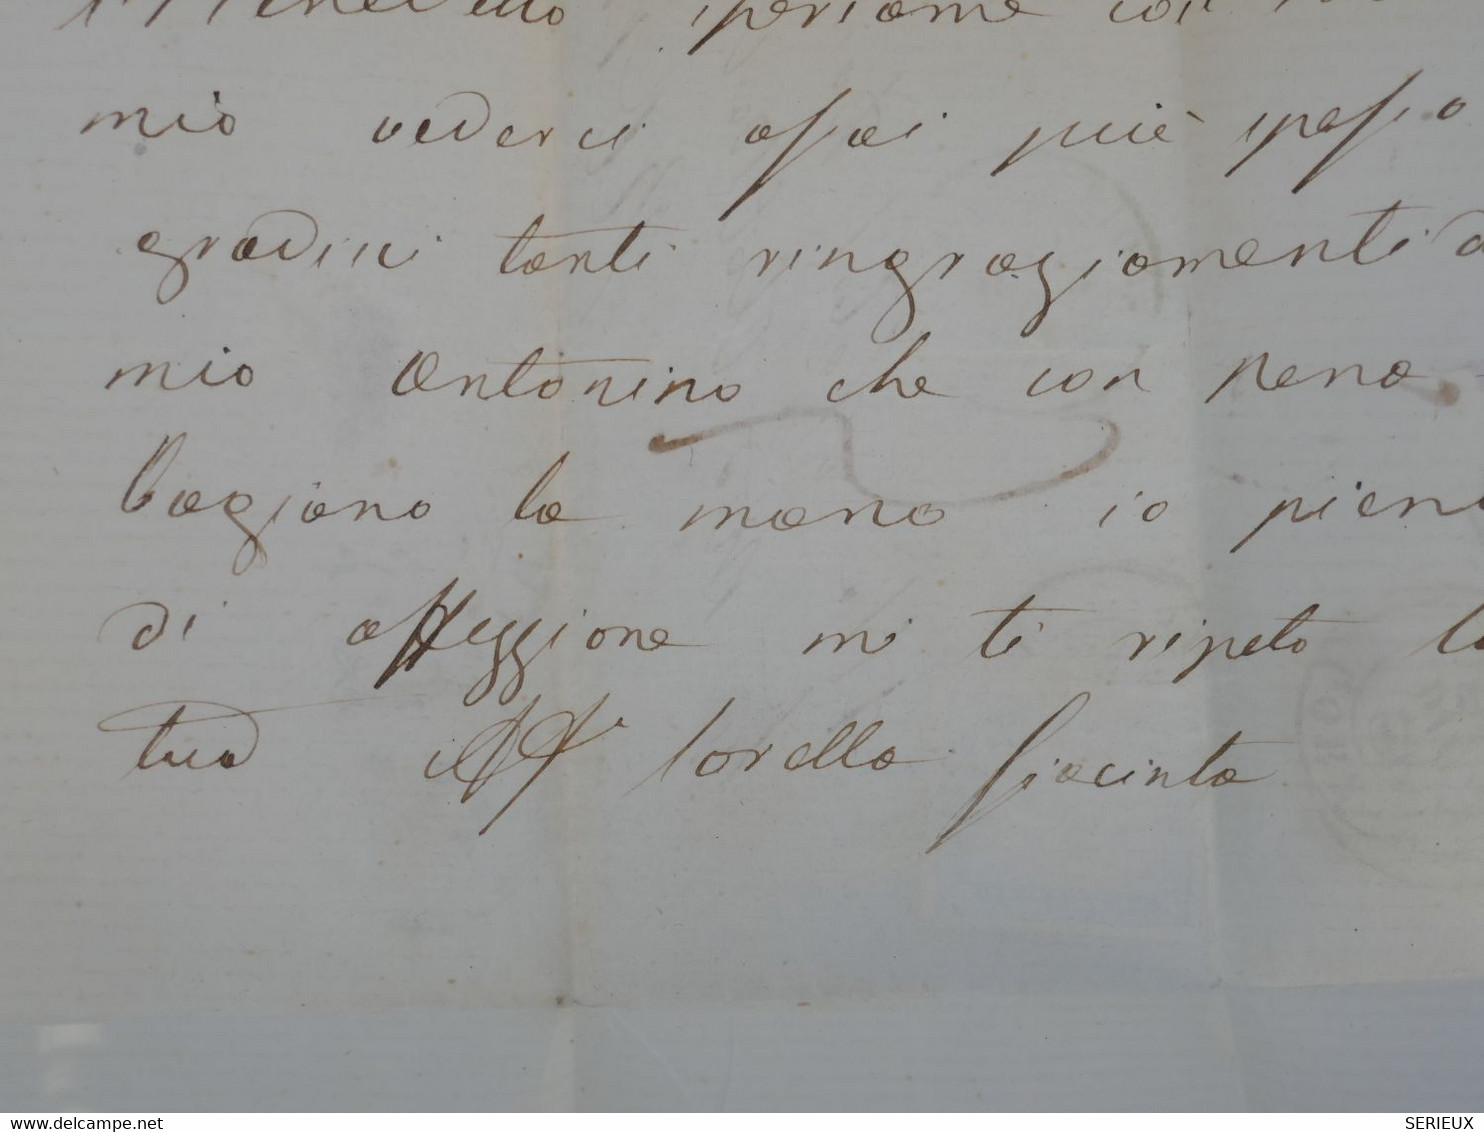 speriamo con
mio vederci assai più spesso
gradisci tanti ringraziamenti
mio Antonino che con Nena
bagiano la mano io pien
di affezzione mi ti ripeto la
tua Aff. sorella Giacinta
www.delcampe.net
SERIEUX